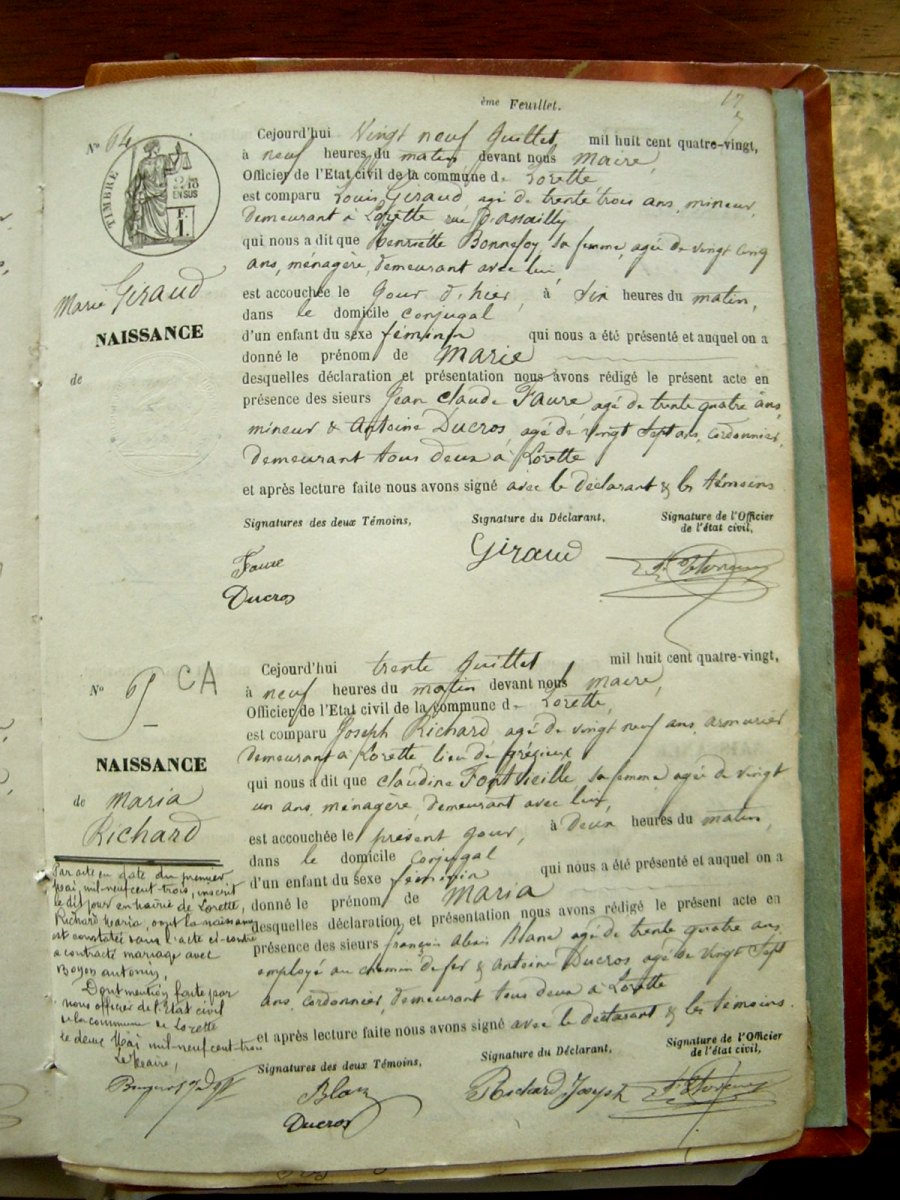 ème Feuillet.
17
7
N° 64
TIMBRE
2/10
EN SUS
F.
1.
Marie Giraud
NAISSANCE
de
Cejourd'hui Vingt neuf Juillet mil huit cent quatre-vingt,
à neuf heures du matin devant nous Maire,
Officier de l'Etat civil de la commune d e Lorette
est comparu Louis Giraud, agé de trente trois ans, mineur,
demeurant à Lorette rue D'assailly
qui nous a dit que Henriette Bonnefoy, sa femme, agée de vingt cinq
ans, ménagère, demeurant avec lui
est accouchée le jour d'hier, à six heures du matin,
dans le domicile conjugal
d'un enfant du sexe féminin qui nous a été présenté et auquel on a
donné le prénom de Marie
desquelles déclaration et présentation nous avons rédigé le présent acte en
présence des sieurs Jean Claude Faure agé de trente quatre ans,
mineur & Antoine Ducros agé de vingt sept ans, cordonnier,
demeurant tous deux à Lorette
et après lecture faite nous avons signé avec le déclarant & les témoins
Signatures des deux Témoins, Signature du Déclarant, Signature de l'Officier
de l'état civil,
Faure
Giraud
Ducros
N° 65
CA
NAISSANCE
de Maria
Richard
Par acte en date du premier
Mai, mil-neuf-cent-trois, inscrit
le dit jour en mairie de Lorette,
Richard Maria, dont la naissance
est constatée dans l'acte ci-contre
a contracté mariage avec
Boyon Antonin,
Dont mention faite par
nous officier de l'Etat civil
de la commune de Lorette
le deux Mai mil-neuf-cent-trois
Le Maire,
Cejourd'hui trente Juillet mil huit cent quatre-vingt,
à neuf heures du matin devant nous Maire,
Officier de l'Etat civil de la commune d e Lorette,
est comparu Joseph Richard agé de vingt neuf ans, armurier
demeurant à Lorette lieu de Grézieux
qui nous a dit que Claudine Fontvieille, sa femme agée de vingt
un ans, ménagère, demeurant avec lui,
est accouchée le présent jour, à deux heures du matin,
dans le domicile conjugal
d'un enfant du sexe féminin qui nous a été présenté et auquel on a
donné le prénom de Maria
desquelles déclaration et présentation nous avons rédigé le présent acte en
présence des sieurs françois Alexis Blanc agé de trente quatre ans,
employé au chemin de fer & Antoine Ducros agé de vingt sept
ans, cordonnier, demeurant tous deux à Lorette
et après lecture faite nous avons signé avec le déclarant & les témoins.
Signatures des deux Témoins, Signature du Déclarant, Signature de l'Officier
de l'état civil,
Blanc
Richard Joseph
Ducros